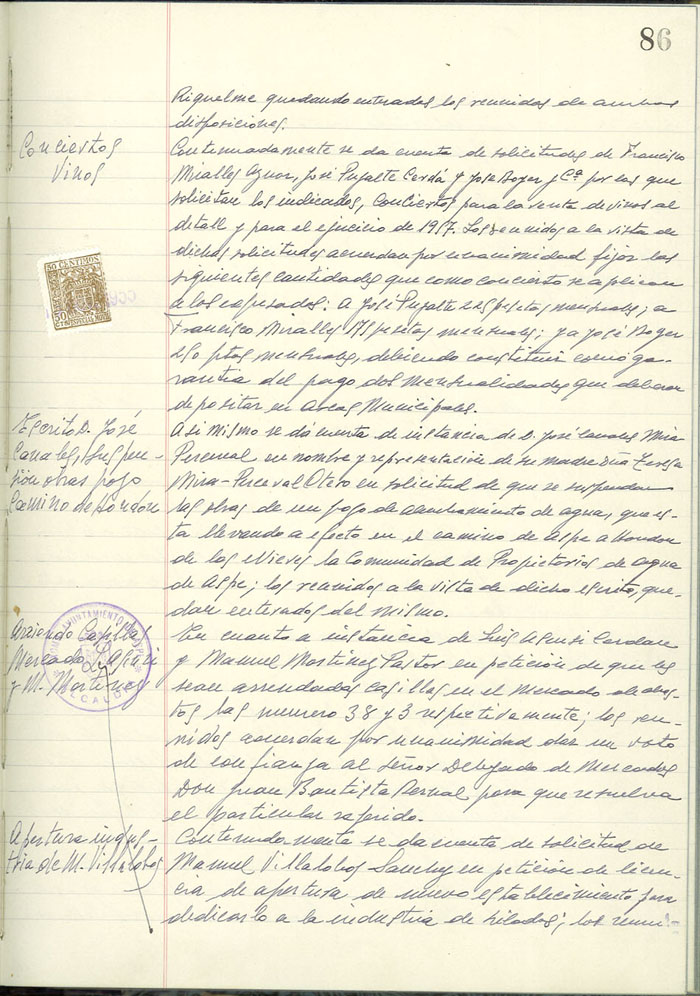 86
Riquelme quedando enterados los reunidos de ambas
disposiciones.
Conciertos
Vinos
Continuadamente se da cuenta de solicitudes de Francisco
Miralles Aznar, José Pujalte Cerdá y José Boyer y Cª por las que
solicitan los indicados, Conciertos para la venta de vinos al
detall y para el ejercicio de 1957. Los reunidos a la vista de
dichas solicitudes acuerdan por unanimidad fijar las
siguientes cantidades que como concierto se aplican
a los expresados: A José Pujalte pesetas mensuales; a
Francisco Miralles 175 pesetas mensuales; y a José Boyer
250 ptas mensuales, debiendo constituir como ga-
rantia del pago dos mensualidades que deberan
depositar en Arcas Municipales.
50 CENTIMOS
50
Escrito D. José
Canales, suspen-
sión obras pozo
Camino de Hondón
Asi mismo se dá cuenta de instancia de D. José Canales Mira
Perceval en nombre y representación de su madre Dña Teresa
Mira-Perceval Otero en solicitud de que se suspendan
las obras de un pozo de alumbramiento de agua, que es-
ta llevando a efecto en el camino de Aspe a Hondon
de las Nieves la Comunidad de Propietarios de agua
de Aspe; los reunidos a la vista de dicho escrito, que-
dan enterados del mismo.
Arriendo Casillas
Mercado L. Asensi
y M. Martinez
AYUNTAMIENTO
ALCALDIA
En cuanto a instancia de Luis Asensi Cerdan
y Manuel Martinez Pastor en petición de que les
sean arrendadas casillas en el Mercado de abas-
tos las numero 38 y 3 respectivamente; los reu-
nidos acuerdan por unanimidad dar un voto
de confianza al señor Delegado de Mercados
Don Juan Bautista Bernal para que resuelva
el particular referido.
Apertura indus-
tria de M. Villalobos
Continuadamente se da cuenta de solicitud de
Manuel Villalobos Sanchez en petición de licen-
cia de apertura de nuevo establecimiento para
dedicarlo a la industria de hilados; los reuni-